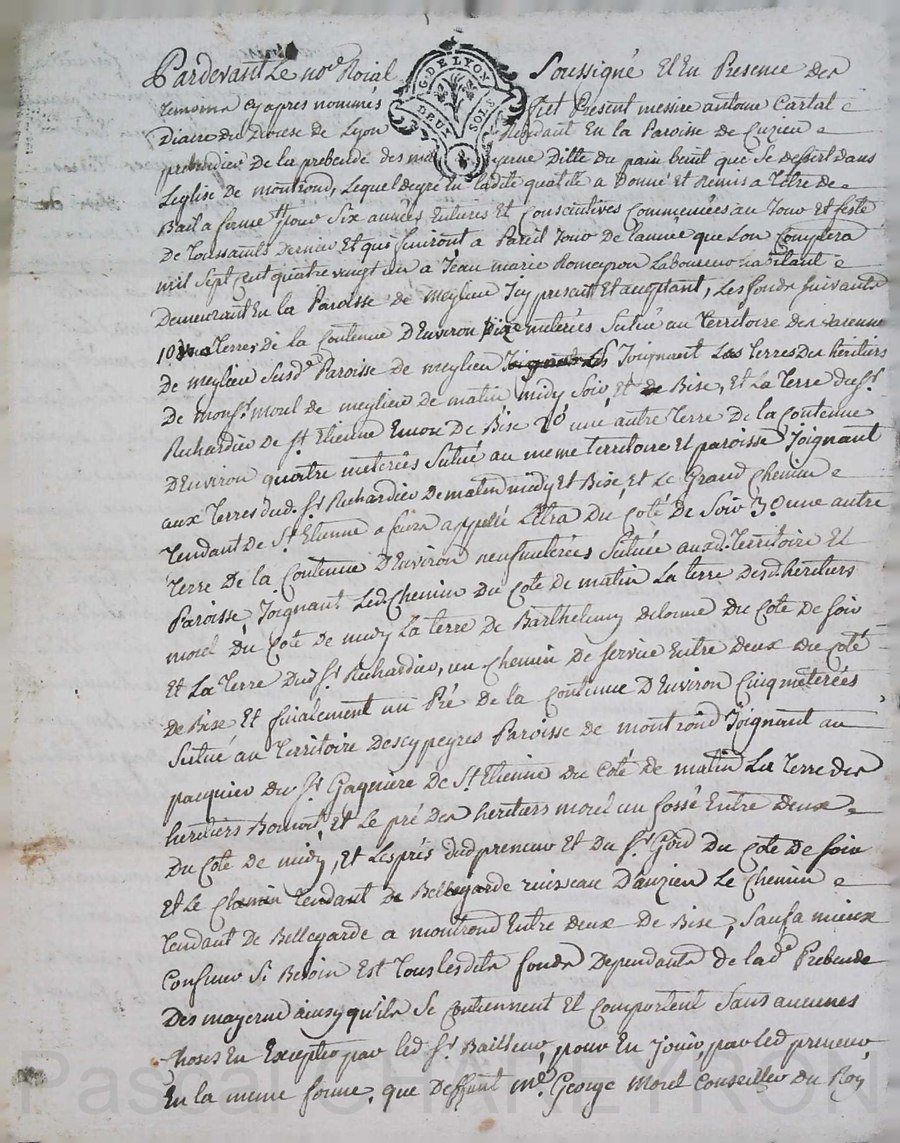 Pardevant Le no.re Roial G. DE LYON Soussigné Et En Presence des
temoins cy apres nommés DEUX SOLS fut Present messire antoine Cartal
Diacre du Diocese de Lyon Residant En la Paroisse de Cuzieu
prebendier de la prebende des Ditte du pain benit que se dessert dans
L'eglise de montrond, Lequel degré en ladite qualité a Donné et Remis a titre de
Bail a ferme pour Six années Entieres Et Consecutives Commencées au Jour Et feste
De toussaints dernier Et qui finiront a Pareil Jour de l'année que Lon Comptera
mil Sept Cent quatre vingt un a Jean marie Romeyron Laboureur habitant
Demeurant En la Paroisse de Meylieu Icy present Et acceptant, Les fonds suivants
10 terres de la Contenue D'Environ meterées Situé au territoire des varennes
de meylieu Susd.e Paroisse de meylieu Joignant Les terres des heritiers
de mons.r morel de meylieu de matin midy Soir, Et de Bise, Et La terre du S.r
Richardier de S.t Etienne Encore De Bise 2° une autre terre De la Contenue
D'Environ quatre meterées Situé au meme territoire Et paroisse Joignant
aux terres dud S.r Richardier de matin midy Et Bise, et Le Grand Chemin
tendant de S.t Etienne a feurs appellé Létra Du Coté de Soir 3° une autre
terre De la Contenue D'Environ neuf meterées Située aud. territoire Et
Paroisse, Joignant Led Chemin Du Coté de matin La terre desd. heritiers
morel Du Coté de midy La terre de Barthelemy delorme Du Coté De Soir
Et La terre Dud S.r Richardier, un Chemin De Servic Entre Deux du Coté
de Bise Et finalement un Pré De la Contenue D'Environ Cinq meterées
Situé au territoire Descypeyres Paroisse De montrond Joignant au
pacquier du S.r Gagniere De S.t Etienne Du Coté de matin La terre des
heritiers Et le pré Des heritiers morel un fossé Entre deux
Du Coté de midy, Et Les prés dud preneur Et du S.r Du Coté De Soir
Et Le Chemin tendant de Bellegarde ruisseau D'auzieu Le Chemin
tendant De Bellegarde a montrond Entre deux De Bise, Sauf a mieux
Confiner Si Besoin Est Tous lesdits fonds Dependants de lad.e Prebende
Des mayerne ainsy qu'ils Se Contiennent Et Comportent Sans aucunes
choses En Excepter par led S.r Bailleur, pour En Jouir, par led preneur
En la meme forme, que Deffunt m.e George Morel Conseiller du Roy
Pascal CHAMEYRON